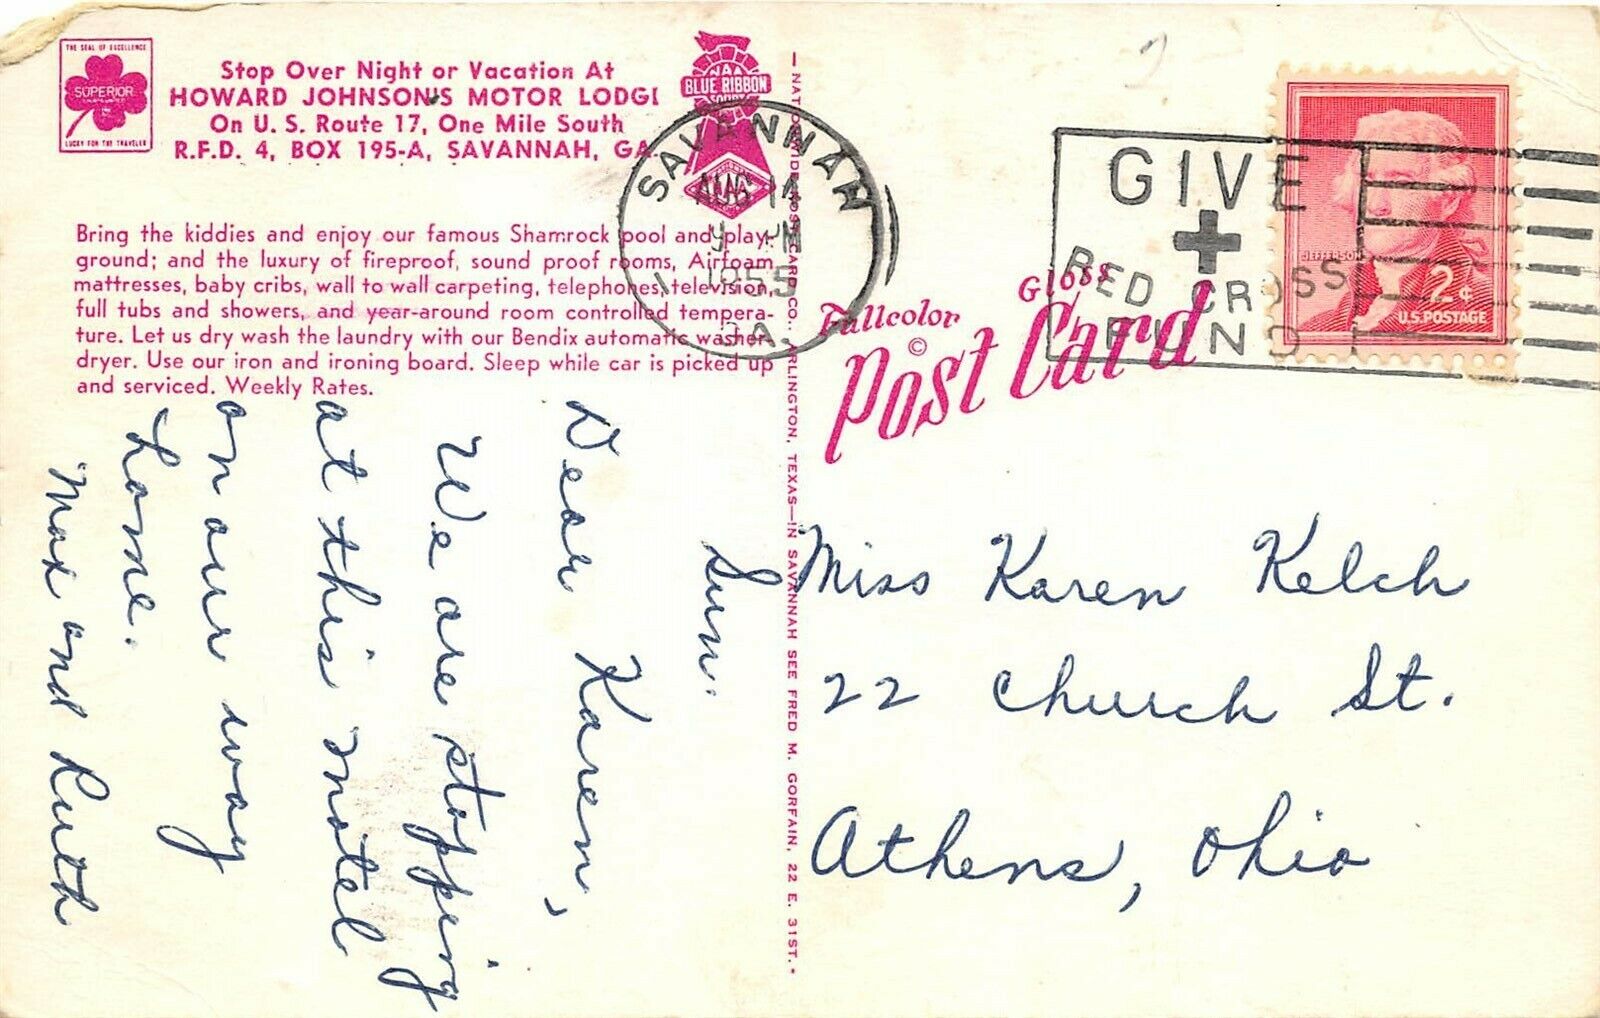 THE SEAL OF EXCELLENCE
SUPERIOR
LUCKY FOR THE TRAVELER
Stop Over Night or Vacation At
HOWARD JOHNSON'S MOTOR LODGE
On U. S. Route 17, One Mile South
R.F.D. 4, BOX 195-A, SAVANNAH, GA.
BLUE RIBBON
AAA
Bring the kiddies and enjoy our famous Shamrock pool and play-
ground; and the luxury of fireproof, sound proof rooms, Airfoam
mattresses, baby cribs, wall to wall carpeting, telephones, television,
full tubs and showers, and year-around room controlled tempera-
ture. Let us dry wash the laundry with our Bendix automatic washer-
dryer. Use our iron and ironing board. Sleep while car is picked up
and serviced. Weekly Rates.
Sun.
Dear Karen,
We are stopping
at this motel
on our way
home.
Max and Ruth
— NATIONWIDE POST CARD CO., ARLINGTON, TEXAS—IN SAVANNAH SEE FRED M. GORFAIN, 22 E. 31ST. •
SAVANNAH
AUG 14
PM
1955
GA
Fullcolor Gloss
©
Post Card
GIVE
RED CROSS
FUND
JEFFERSON
2¢
U.S. POSTAGE
Miss Karen Kelch
22 Church St.
Athens, Ohio